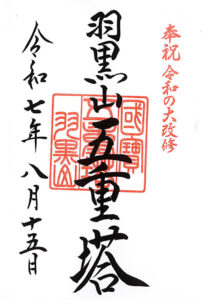 奉祝 令和の大改修
羽黒山五重塔
國寶
五重塔
羽黒山
令和七年八月十五日